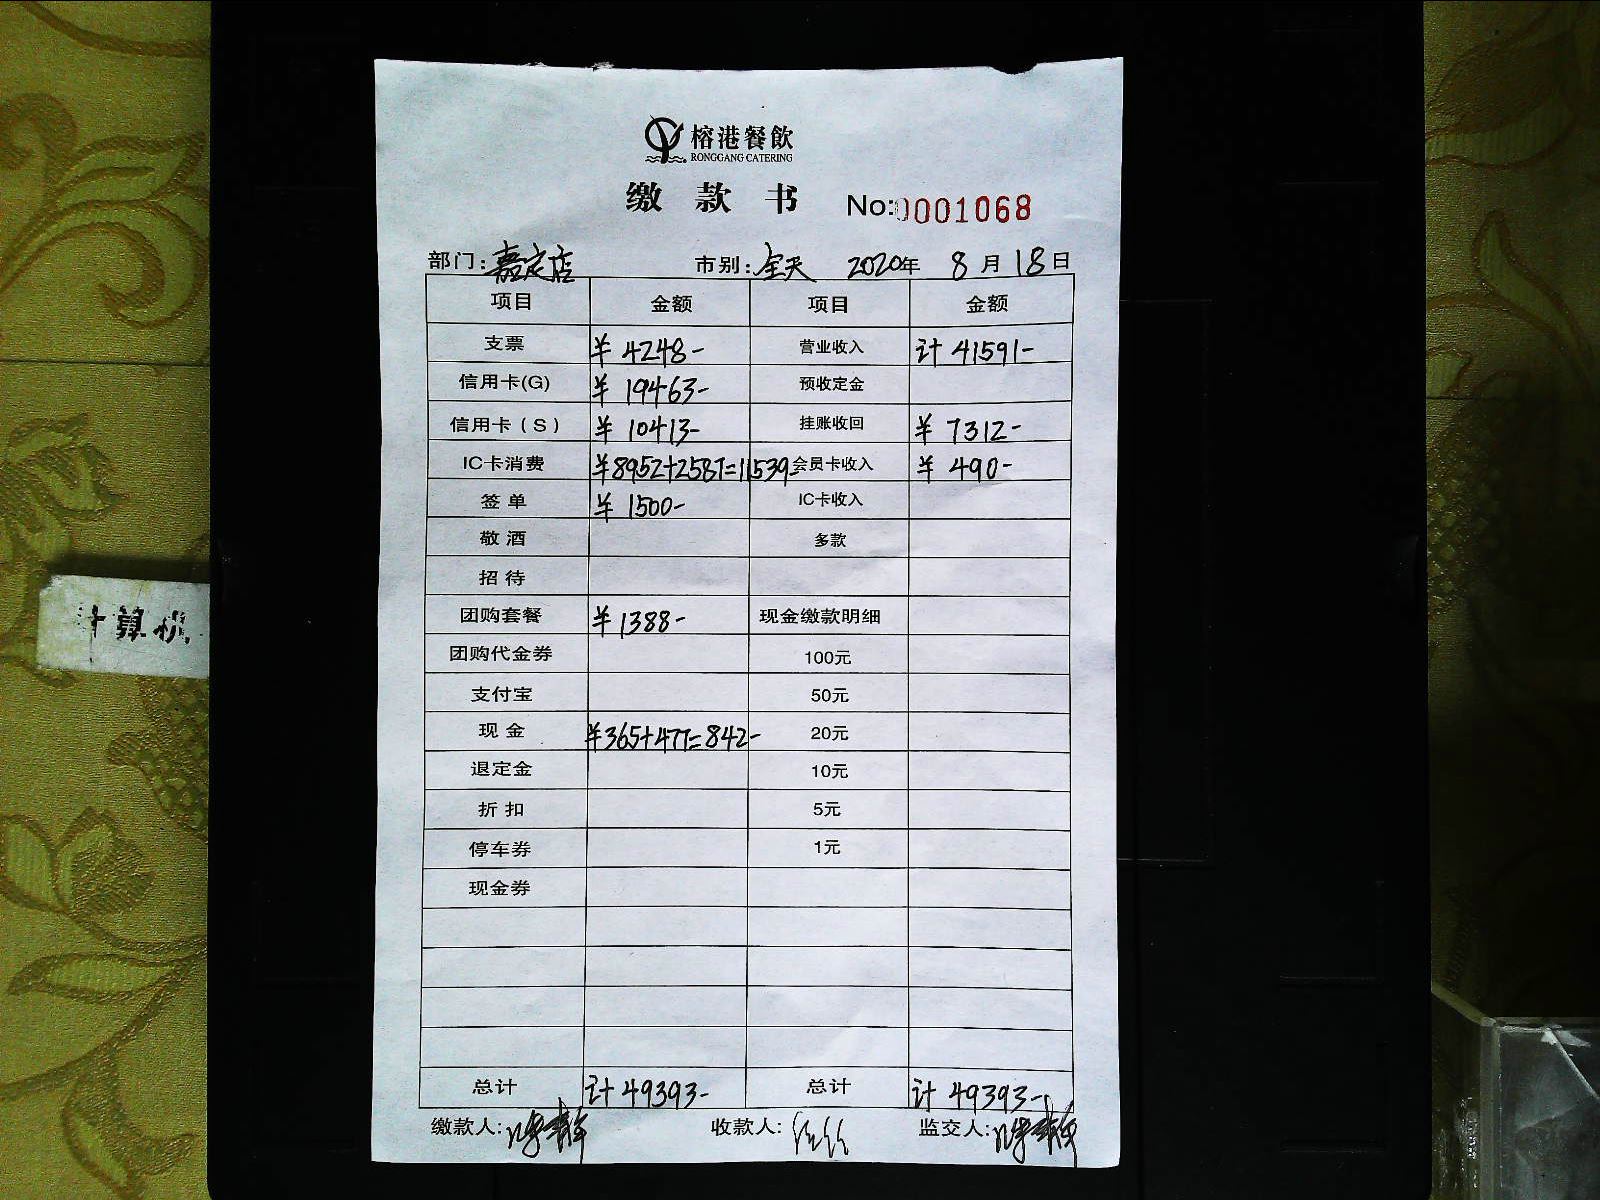 榕港餐飲
RONGGANG CATERING
缴款书 No:0001068
部门:嘉定店 市别:全天 2020年 8月18日
项目 金额 项目 金额
支票 ¥4248- 营业收入 计41591-
信用卡(G) ¥19463- 预收定金
信用卡(S) ¥10413- 挂账收回 ¥7312-
IC卡消费 ¥8952+2587=11539- 会员卡收入 ¥490-
签单 ¥1500- IC卡收入
敬酒 多款
招待
团购套餐 ¥1388- 现金缴款明细
团购代金券 100元
支付宝 50元
现金 ¥365+477=842- 20元
退定金 10元
折扣 5元
停车券 1元
现金券
总计 计49393- 总计 计49393-
缴款人: 收款人: 监交人:
计算机